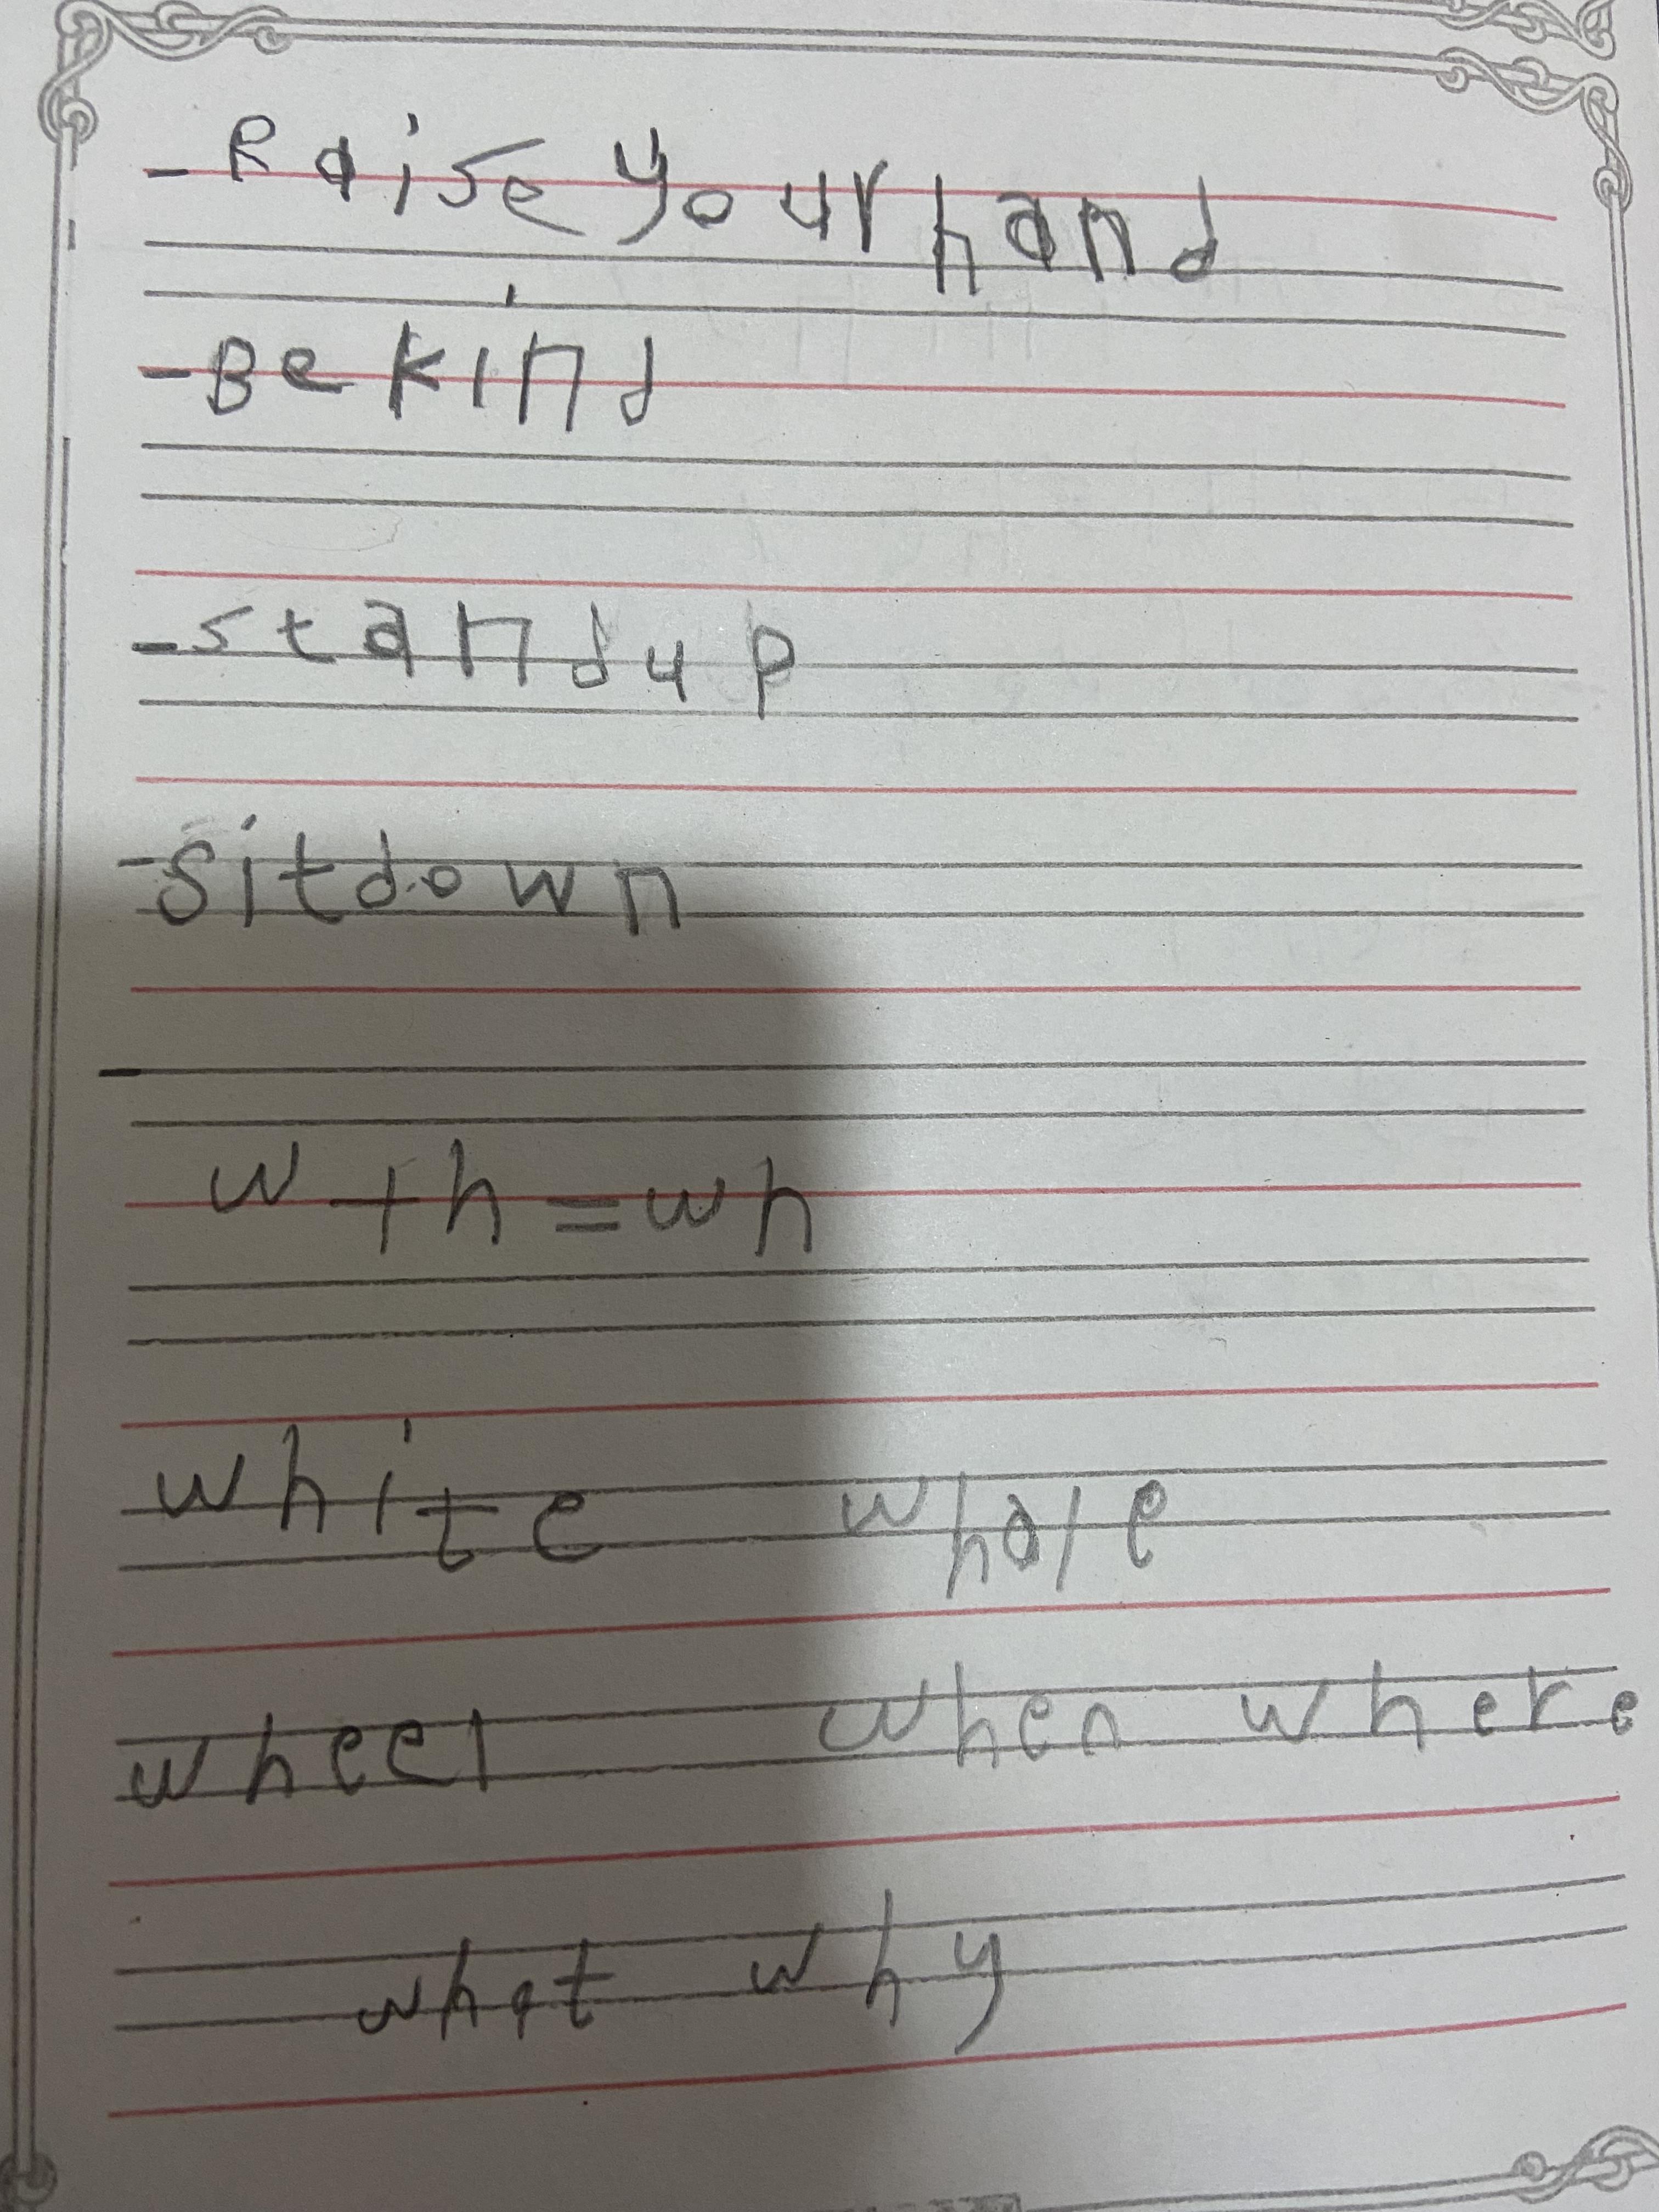 - Raise your hand
- Be kind
- stand up
- sit down
-
w + h = wh
white whale
wheel when where
what why